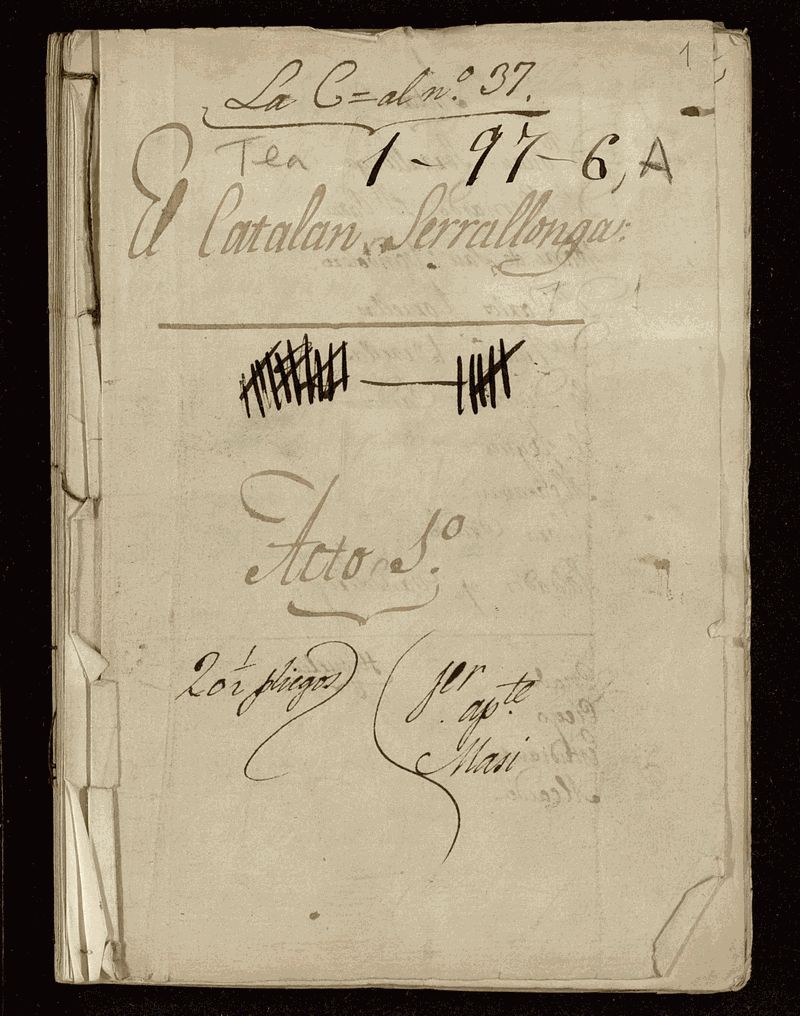 La C=al nº 37.
Tea 1-97-6, A
El Catalan Serrallonga:
Acto 1º
20½ pliegos
1er
apte
Masi
1